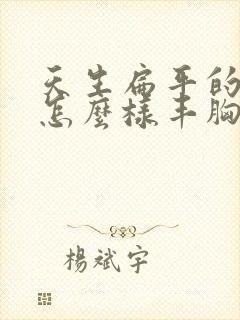 天生扁平的
怎麼樣丰胸
楊斌宇